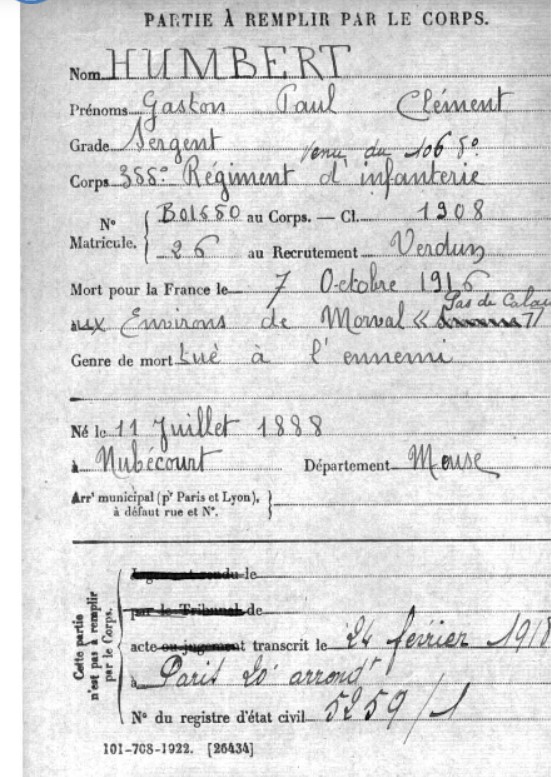 PARTIE À REMPLIR PAR LE CORPS.
Nom HUMBERT
Prénoms Gaston Paul Clément
Grade Sergent
venu du 106 5º
Corps 355º Régiment d'infanterie
Nº Matricule. { B01550 au Corps. — Cl. 1908
26 au Recrutement Verdun
Mort pour la France le 7 Octobre 1916
aux Environs de Morval « Pas de Calais »
Genre de mort tué à l'ennemi
Né le 11 Juillet 1888
à Nubécourt Département Meuse
Arrt municipal (pr Paris et Lyon),
à défaut rue et Nº.
Cette partie n'est pas à remplir par le Corps.
Jugement rendu le
par le Tribunal de
acte ou jugement transcrit le 24 février 1918
à Paris 20º arrondt
Nº du registre d'état civil 5259/1
101-708-1922. [26434]